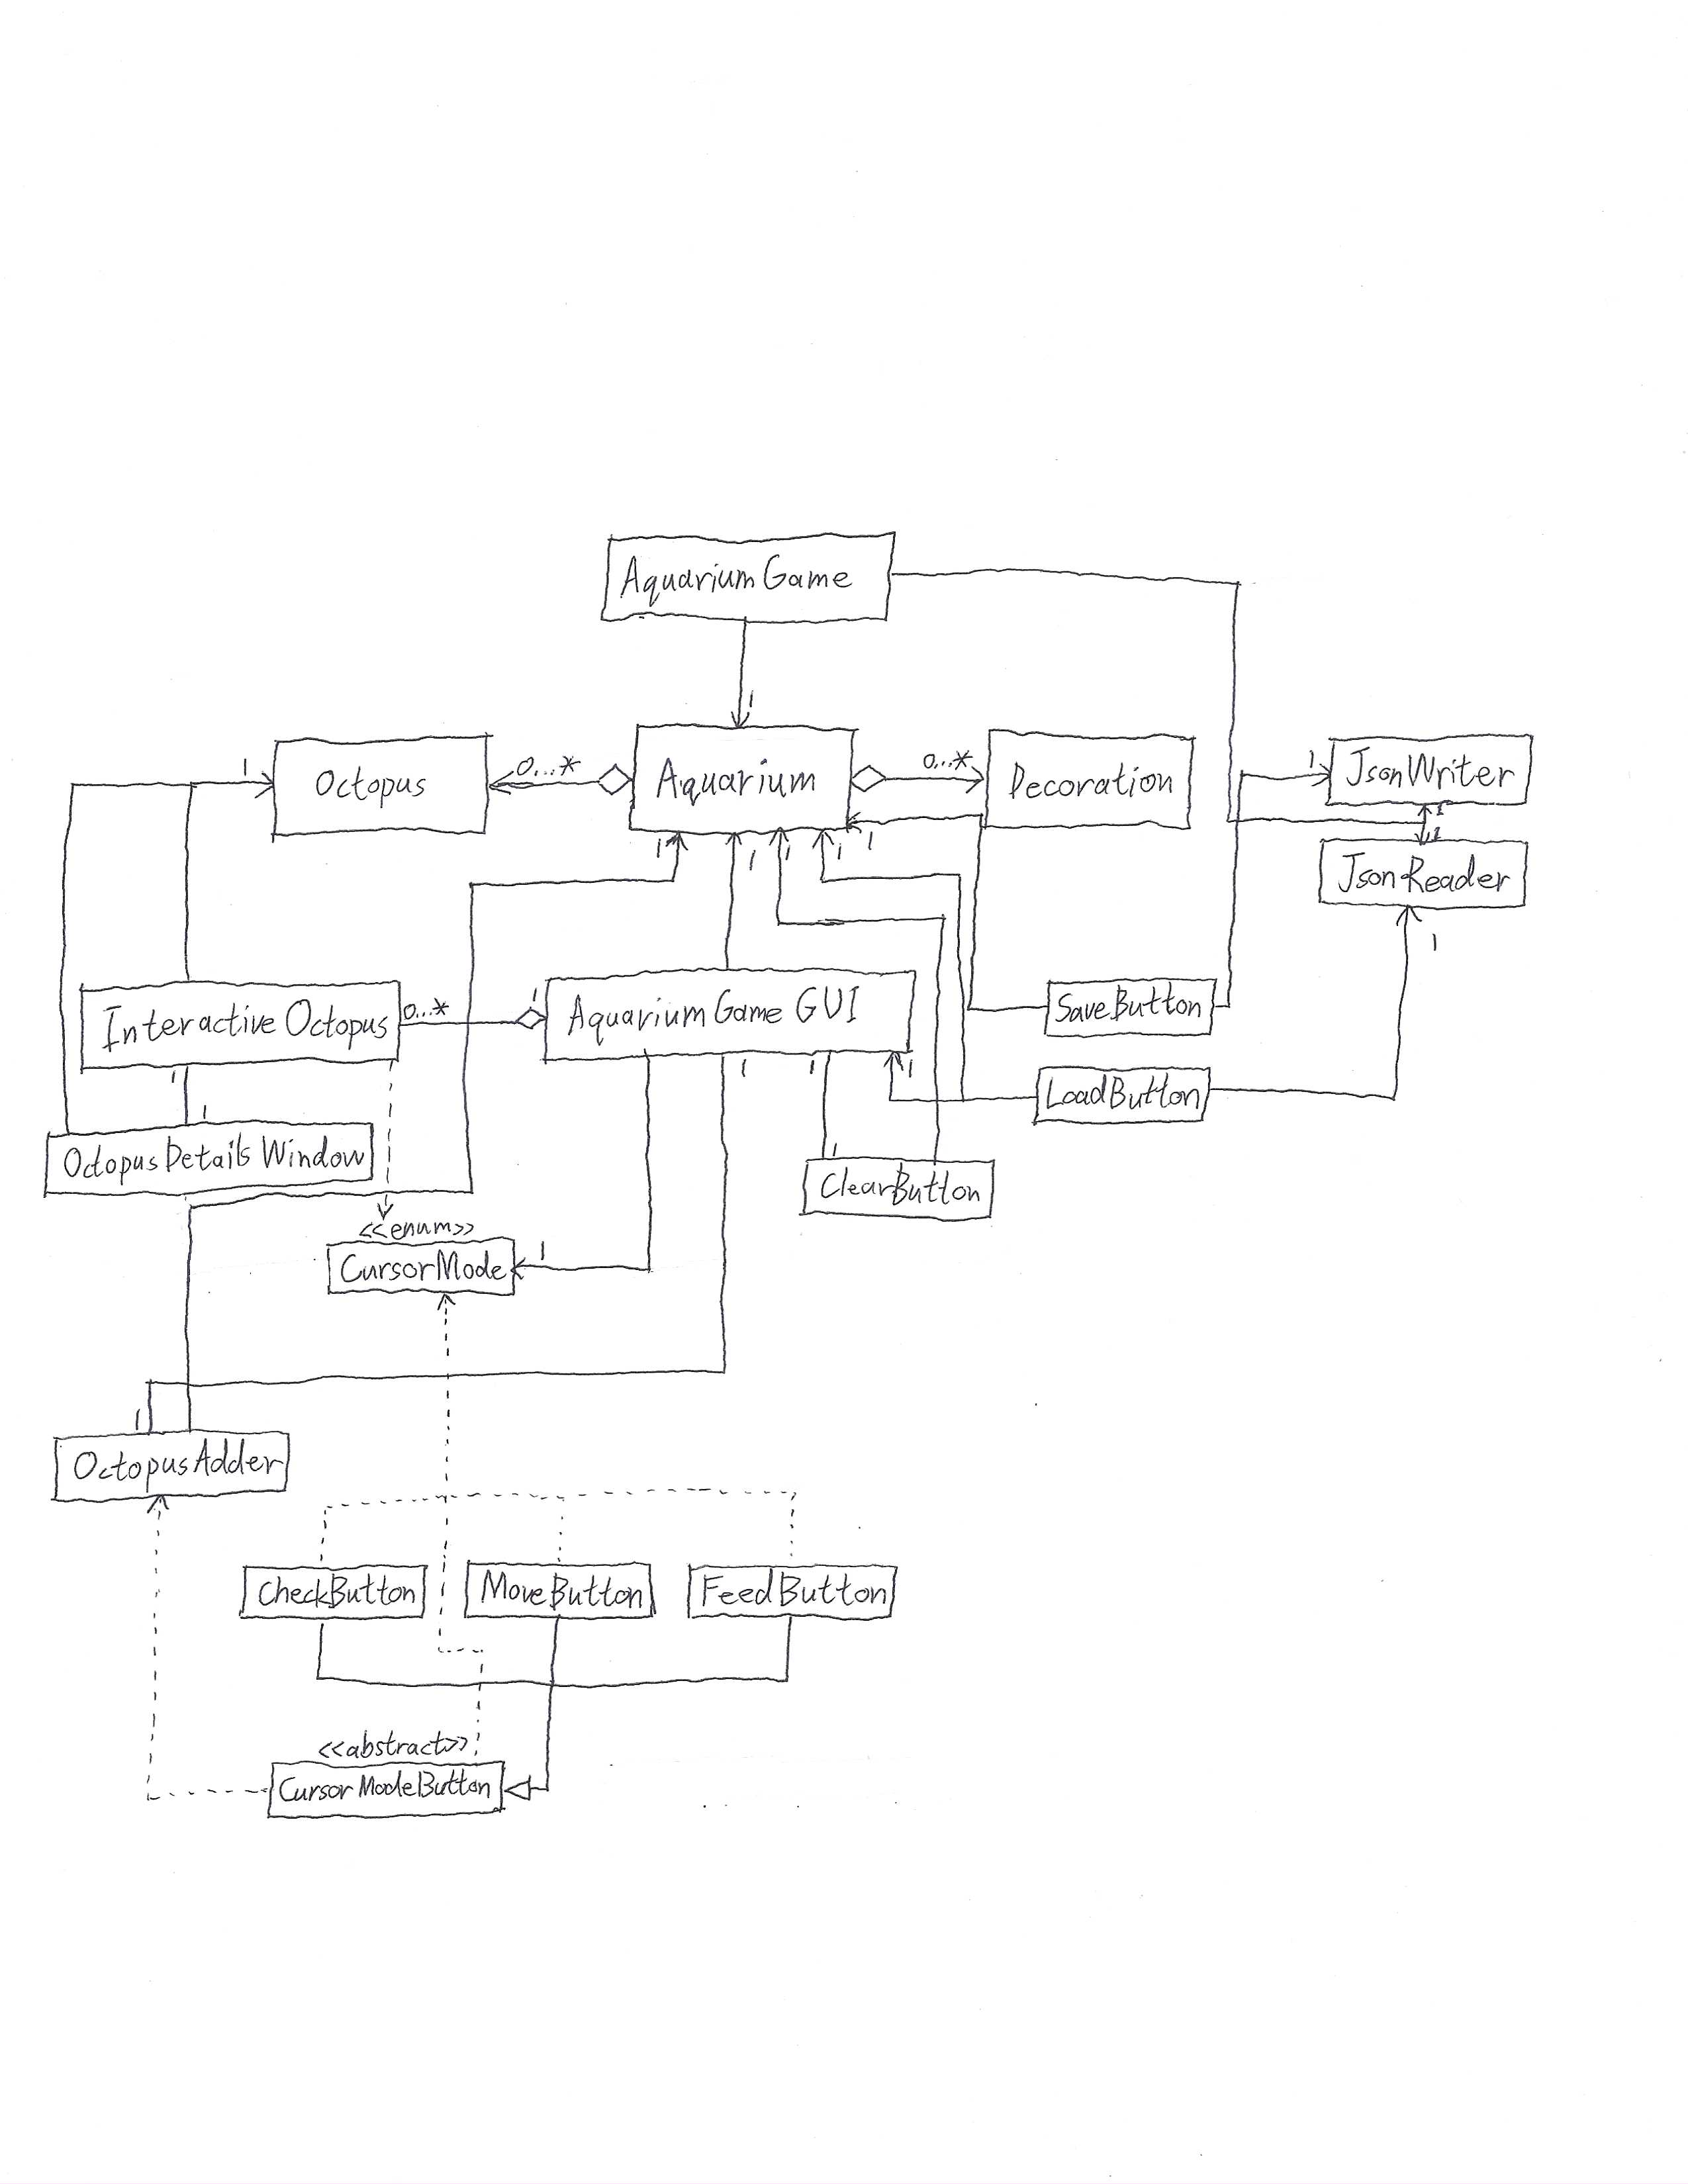 AquariumGame
1
Octopus
0...*
Aquarium
0...*
Decoration
1
JsonWriter
1
1
1
JsonReader
1
1
1
1
1
1
1
Interactive Octopus
0...*
1
AquariumGame GUI
SaveButton
1
1
1
1
1
LoadButton
OctopusDetails Window
1
ClearButton
<<enum>>
CursorMode
1
1
OctopusAdder
CheckButton
MoveButton
FeedButton
<<abstract>>
CursorModeButton